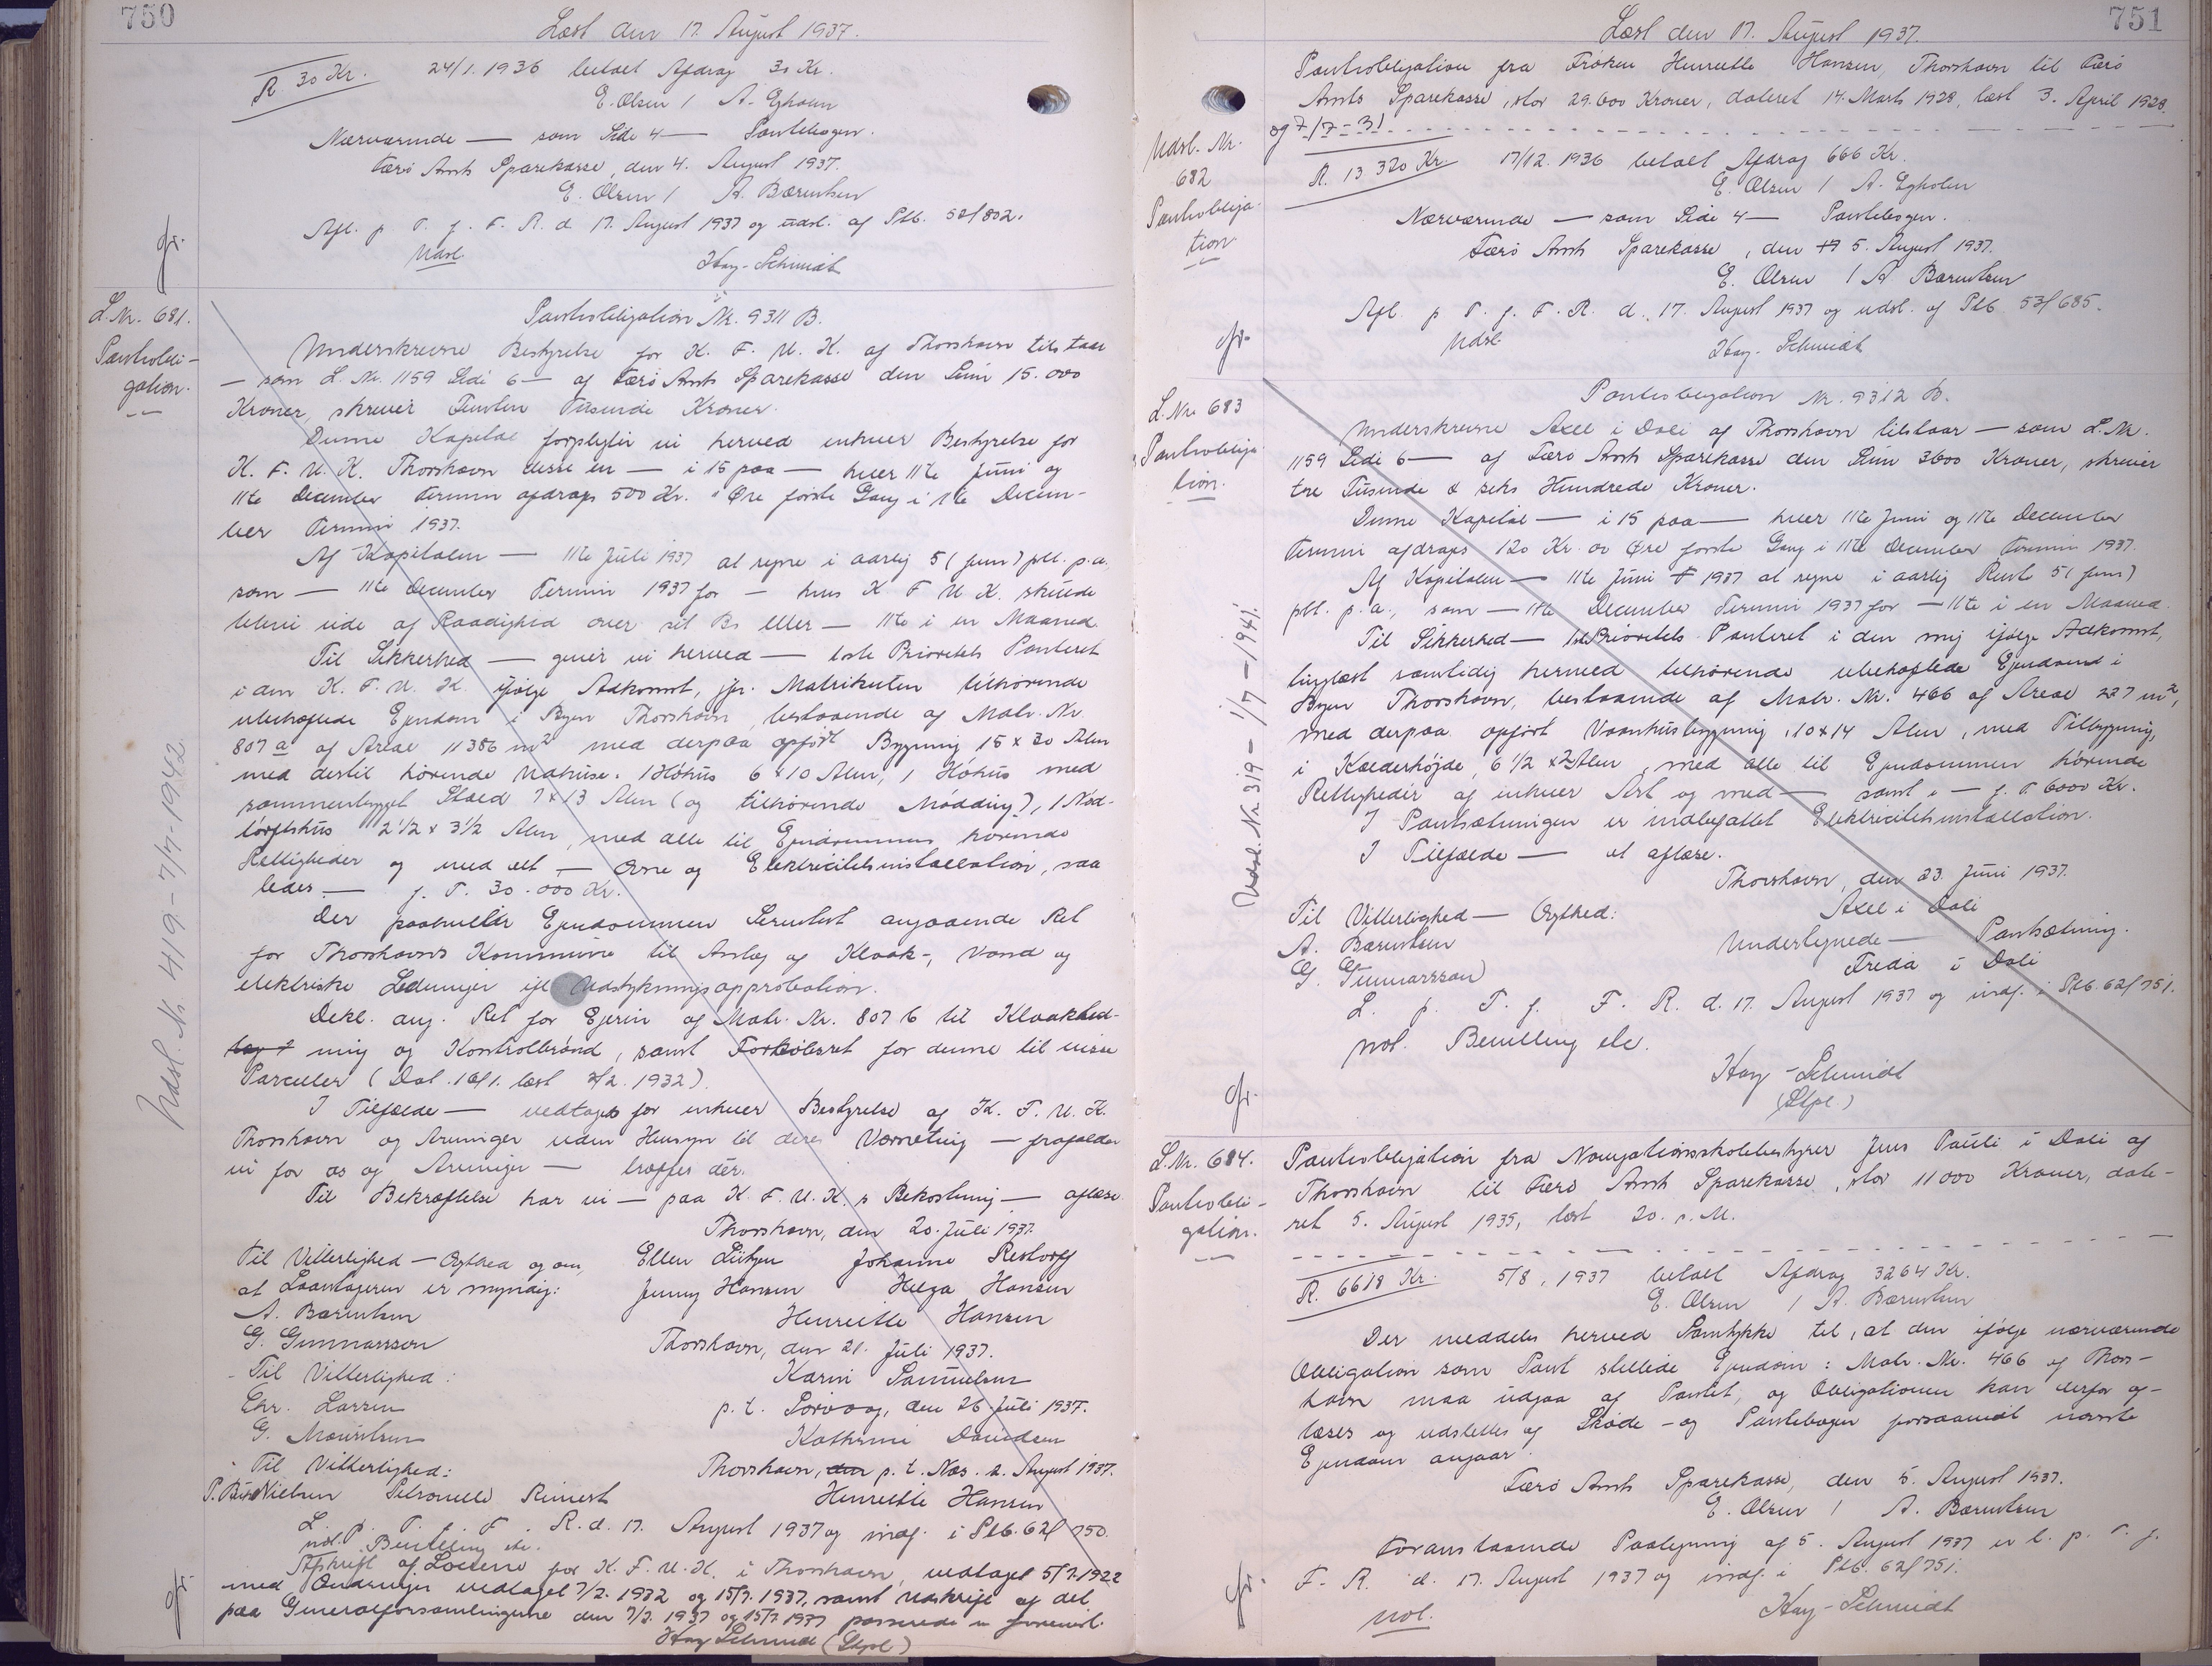 750
Læst den 17. August 1937.
R. 30 Kr. 24/1. 1936 betalt Afdrag 30 Kr.
E. Olsen / A. Egholm
Nærværende — som Side 4 — Pantebogen.
Færø Amts Sparekasse, den 4. August 1937.
E. Olsen / A. Bærentsen
Afl. p T. f. F. R. d. 17. August 1937 og udsl. af Ptb. 52/802.
Udsl. Hay-Schmidt
gr.
L. Nr. 681.
Pantobli-
gation.
Pantobligation Nr. 9311 B.
Underskrevne Bestyrelse for K. F. U. K. af Thorshavn tilstaar
— som L. Nr. 1159 Side 6 — af Færø Amts Sparekasse den Sum 15.000
Kroner, skriver Femten Tusende Kroner.
Denne Kapital forpligter vi herved enhver Bestyrelse for
K. F. U. K. Thorshavn disse en — i 15 paa — hver 11te Juni og
11te December Termin afdrages 500 Kr. " Øre første Gang i 11te Decem-
ber Termin 1937.
Af Kapitalen — 11te Juli 1937 at regne i aarlig 5 (fem) pCt. p.a.
som — 11te December Termin 1937 for — hvis K. F. U. K. skulde
blive ude af Raadighed over sit Bo eller — 11te i en Maaned.
Til Sikkerhed — giver vi herved — 1ste Prioritets Panteret
i den K. F. U. K. ifølge Adkomst, jfr. Matrikulen tilhørende
ubehæftede Ejendom i Byen Thorshavn, bestaaende af Matr. Nr.
807 a af Areal 11386 m² med derpaa opført Bygning 15 x 30 Alen
med dertil hørende Udhuse. 1 Höhus 6 x 10 Alen, 1 Höhus med
sammenbygget Stald 7 x 13 Alen (og tilhørende Mødding), 1 Nød-
törftshus 2 1/2 x 3 1/2 Alen, med alle til Ejendommen hørende
Rettigheder og med alt — Ovne og Elektricitetsinstallation, saa
ledes — f. T. 30.000 Kr.
Der paahviler Ejendommen Servitut angaaende Ret
for Thorshavns Kommune til Anlæg af Kloak-, Vand og
elektriske Ledninger ifl Udstykningsapprobation.
Dekl. ang. Ret for Ejeren af Matr. Nr. 807 b til Kloakled-
ning og Kontrolbrønd, samt Forkøbsret for denne til visse
Parceller (Dat. 16/1. læst 2/2. 1932).
I Tilfælde — vedtages for enhver Bestyrelse af K. F. U. K.
Thorshavn og Arvinger uden Hensyn til deres Værneting — frafalder
vi for os og Arvinger — træffes dér.
Til Bekræftelse har vi — paa K. F. U. K.s Bekostning — aflæse.
Thorshavn, den 20. Juli 1937.
Til Vitterlighed — Ægthed og om, Ellen Lützen Johanne Restorff
at Laantageren er myndig: Jenny Hansen Helga Hansen
A. Bærentsen Henriette Hansen
G. Gunnarsson Thorshavn, den 21. Juli 1937.
Til Vitterlighed: Karin Samuelsen
Chr. Larsen p. t. Sørvaag, den 26. Juli 1937.
G. Mouritsen Kathrine Davidsen
Til Vitterlighed: Thorshavn, den p. t. Næs. 2. August 1937.
Nielsen Petronelle Reinert Henriette Hansen
L. p. T. f. F. R. d. 17. August 1937 og indf. i Ptb. 62/750.
not. Bevilling etc.
Afskrift af Lovene for K. F. U. K. i Thorshavn, vedtaget 5/7.1922
med Ændringer vedtaget 7/2. 1932 og 15/7. 1937, samt Udskrift af det
paa Generalforsamlingerne den 7/2. 1937 og 15/7. 1937 passerede er forevist.
Hay Schmidt (Stpl)
gr.
Udsl. Nr. 419 - 7/7-1942
751
Læst den 17. August 1937.
Udsl. Nr.
682
Pantobliga-
tion
Pantobligation fra Frøken Henriette Hansen, Thorshavn til Færø
Amts Sparekasse, stor 29.600 Kroner, dateret 14. Marts 1928, læst 3. April 1928.
og 7/7-31
R. 13 320 Kr. 17/12. 1936 betalt Afdrag 666 Kr.
E. Olsen / A. Egholm
Nærværende — som Side 4 — Pantebogen.
Færø Amts Sparekasse, den 5. August 1937.
E. Olsen / A. Bærentsen
Afl. p T. f. F. R. d. 17. August 1937 og udsl. af Ptb 53/685.
Udsl. Hay-Schmidt
gr.
L. Nr. 683
Pantobliga-
tion.
Pantobligation Nr. 9312 B.
Underskrevne Axel i Dali af Thorshavn tilstaar — som L. Nr.
1159 Side 6 — af Færø Amts Sparekasse den Sum 3600 Kroner, skriver
tre Tusende & seks Hundrede Kroner.
Denne Kapital — i 15 paa — hver 11te Juni og 11te December
Termin afdrages 120 Kr. 00 Øre første Gang i 11te December Termin 1937.
Af Kapitalen — 11te Juni 1937 at regne i aarlig Rente 5 (fem)
pCt. p.a., som — 11te December Termin 1937 for — 11te i en Maaned.
Til Sikkerhed — 1ste Prioritets Panteret i den mig ifølge Adkomst,
tinglæst samtidig herved tilhørende ubehæftede Ejendom i
Byen Thorshavn, bestaaende af Matr. Nr. 466 af Areal 227 m²,
med derpaa opført Vaanhusbygning, 10 x 14 Alen, med Tilbygning,
i Kælderhøjde, 6 1/2 x 2 Alen, med alle til Ejendommen hørende
Rettigheder af enhver Art og med — samt i — f. T. 6000 Kr.
I Pantsætningen er indbefattet Elektricitetsinstallation.
I Tilfælde — at aflæse.
Thorshavn, den 23. Juni 1937.
Til Vitterlighed — Ægthed: Axel i Dali
A. Bærentsen Undertegnede — Pantsætning.
G. Gunnarsson Freda i Dali
L. p. T. f. F. R. d. 17. August 1937 og indf. i Ptb. 62/751.
not. Bevilling etc.
Hay-Schmidt
(Stpl.)
gr.
Udsl. Nr. 319 - 1/7 - 1941.
L. Nr. 684.
Pantobli-
gation.
Pantobligation fra Navigationsskolebestyrer Jens Pauli i Dali af
Thorshavn til Færø Amts Sparekasse, stor 11000 Kroner, date-
ret 5. August 1935, læst 20. s. M.
R. 6618 Kr. 5/8, 1937 betalt Afdrag 3264 Kr.
E. Olsen / A. Bærentsen
Der meddeles herved Samtykke til, at den ifølge nærværende
Obligation som Pant stillede Ejendom: Matr. Nr. 466 af Thors-
havn maa udgaa af Pantet, og Obligationen kan derfor af-
læses og udslettes af Skøde- og Pantebogen forsaavidt nævnte
Ejendom angaar.
Færø Amts Sparekasse, den 5. August 1937.
E. Olsen / A. Bærentsen
Foranstaaende Paategning af 5. August 1937 er l. p. T. f.
F. R. d. 17. August 1937 og indf. i Ptb. 62/751.
not. Hay-Schmidt
gr.